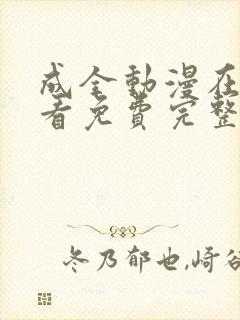 成全動漫在
看免費完整
冬乃郁也,崎谷